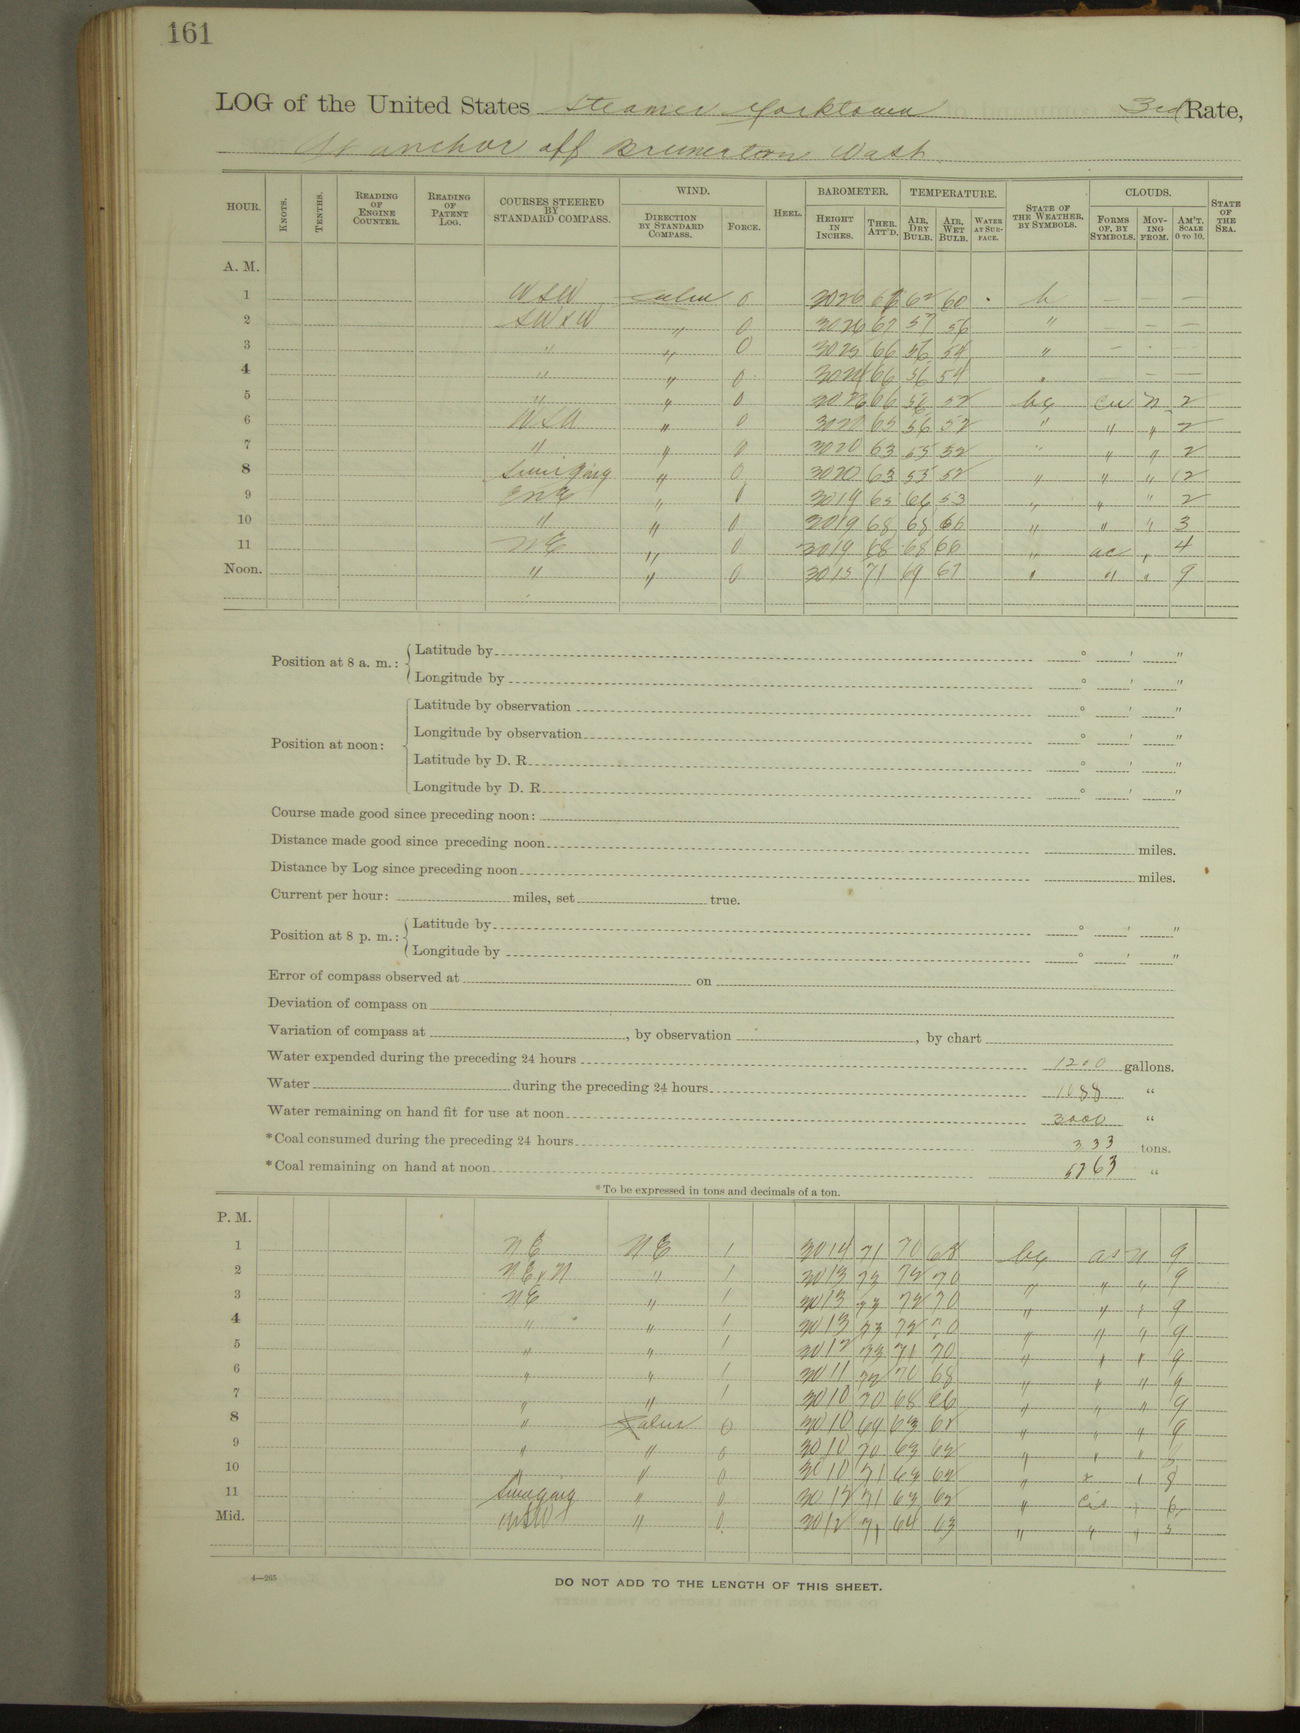 161
LOG of the United States Steamer Yorktown 3rd Rate,
At anchor off Bremerton Wash.
HOUR. KNOTS. TENTHS. READING OF ENGINE COUNTER. READING OF PATENT LOG. COURSES STEERED BY STANDARD COMPASS. WIND. DIRECTION BY STANDARD COMPASS. FORCE. HEEL. BAROMETER. HEIGHT IN INCHES. THER. ATT'D. TEMPERATURE. AIR, DRY BULB. AIR, WET BULB. WATER AT SURFACE. STATE OF THE WEATHER, BY SYMBOLS. CLOUDS. FORMS OF, BY SYMBOLS. MOVING FROM. AM'T. SCALE 0 TO 10. STATE OF THE SEA.
A. M.
1 WSW Calm 0 3026 62 60 b — — —
2 SW x W " 0 3026 67 57 56 " — — —
3 " " 0 3025 66 56 54 " — - —
4 " " 0 66 56 54 " — — —
5 " " 0 66 56 52 bc Cu N 2
6 WSW " 0 65 56 52 " " " 2
7 " " 0 3020 63 55 52 " " " 2
8 Swinging " 0 3020 63 55 52 " " " 2
9 ENE " 0 3019 65 66 53 " " " 2
10 " " 0 3019 68 68 66 " " " 3
11 NE " 0 3019 68 68 66 " ac " 4
Noon. " " 0 3015 71 69 67 " " " 9
Position at 8 a. m.: Latitude by ° ' "
Longitude by ° ' "
Position at noon: Latitude by observation ° ' "
Longitude by observation ° ' "
Latitude by D. R. ° ' "
Longitude by D. R. ° ' "
Course made good since preceding noon:
Distance made good since preceding noon miles.
Distance by Log since preceding noon miles.
Current per hour: miles, set true.
Position at 8 p. m.: Latitude by ° ' "
Longitude by ° ' "
Error of compass observed at on
Deviation of compass on
Variation of compass at , by observation , by chart
Water expended during the preceding 24 hours 1200 gallons.
Water during the preceding 24 hours 1088 "
Water remaining on hand fit for use at noon 3000 "
*Coal consumed during the preceding 24 hours 333 tons.
*Coal remaining on hand at noon 5763 "
*To be expressed in tons and decimals of a ton.
P. M.
1 NE NE 1 3014 71 70 68 bc as N 9
2 NE x N " 1 3013 73 72 70 " " " 9
3 NE " 1 3013 73 72 70 " " " 9
4 " " 1 3013 73 72 70 " " " 9
5 " " 1 3012 73 71 70 " " " 9
6 " " 1 3011 72 70 68 " " " 9
7 " " 1 3010 70 68 66 " " " 9
8 " Calm 0 3010 69 63 62 " " " 9
9 " " 0 3010 70 63 62 " " "
10 " " 0 3010 71 63 62 " " 8
11 Swinging " 0 3012 71 63 62 " "
Mid. WSW " 0 3012 71 64 63 " " "
4—265
DO NOT ADD TO THE LENGTH OF THIS SHEET.